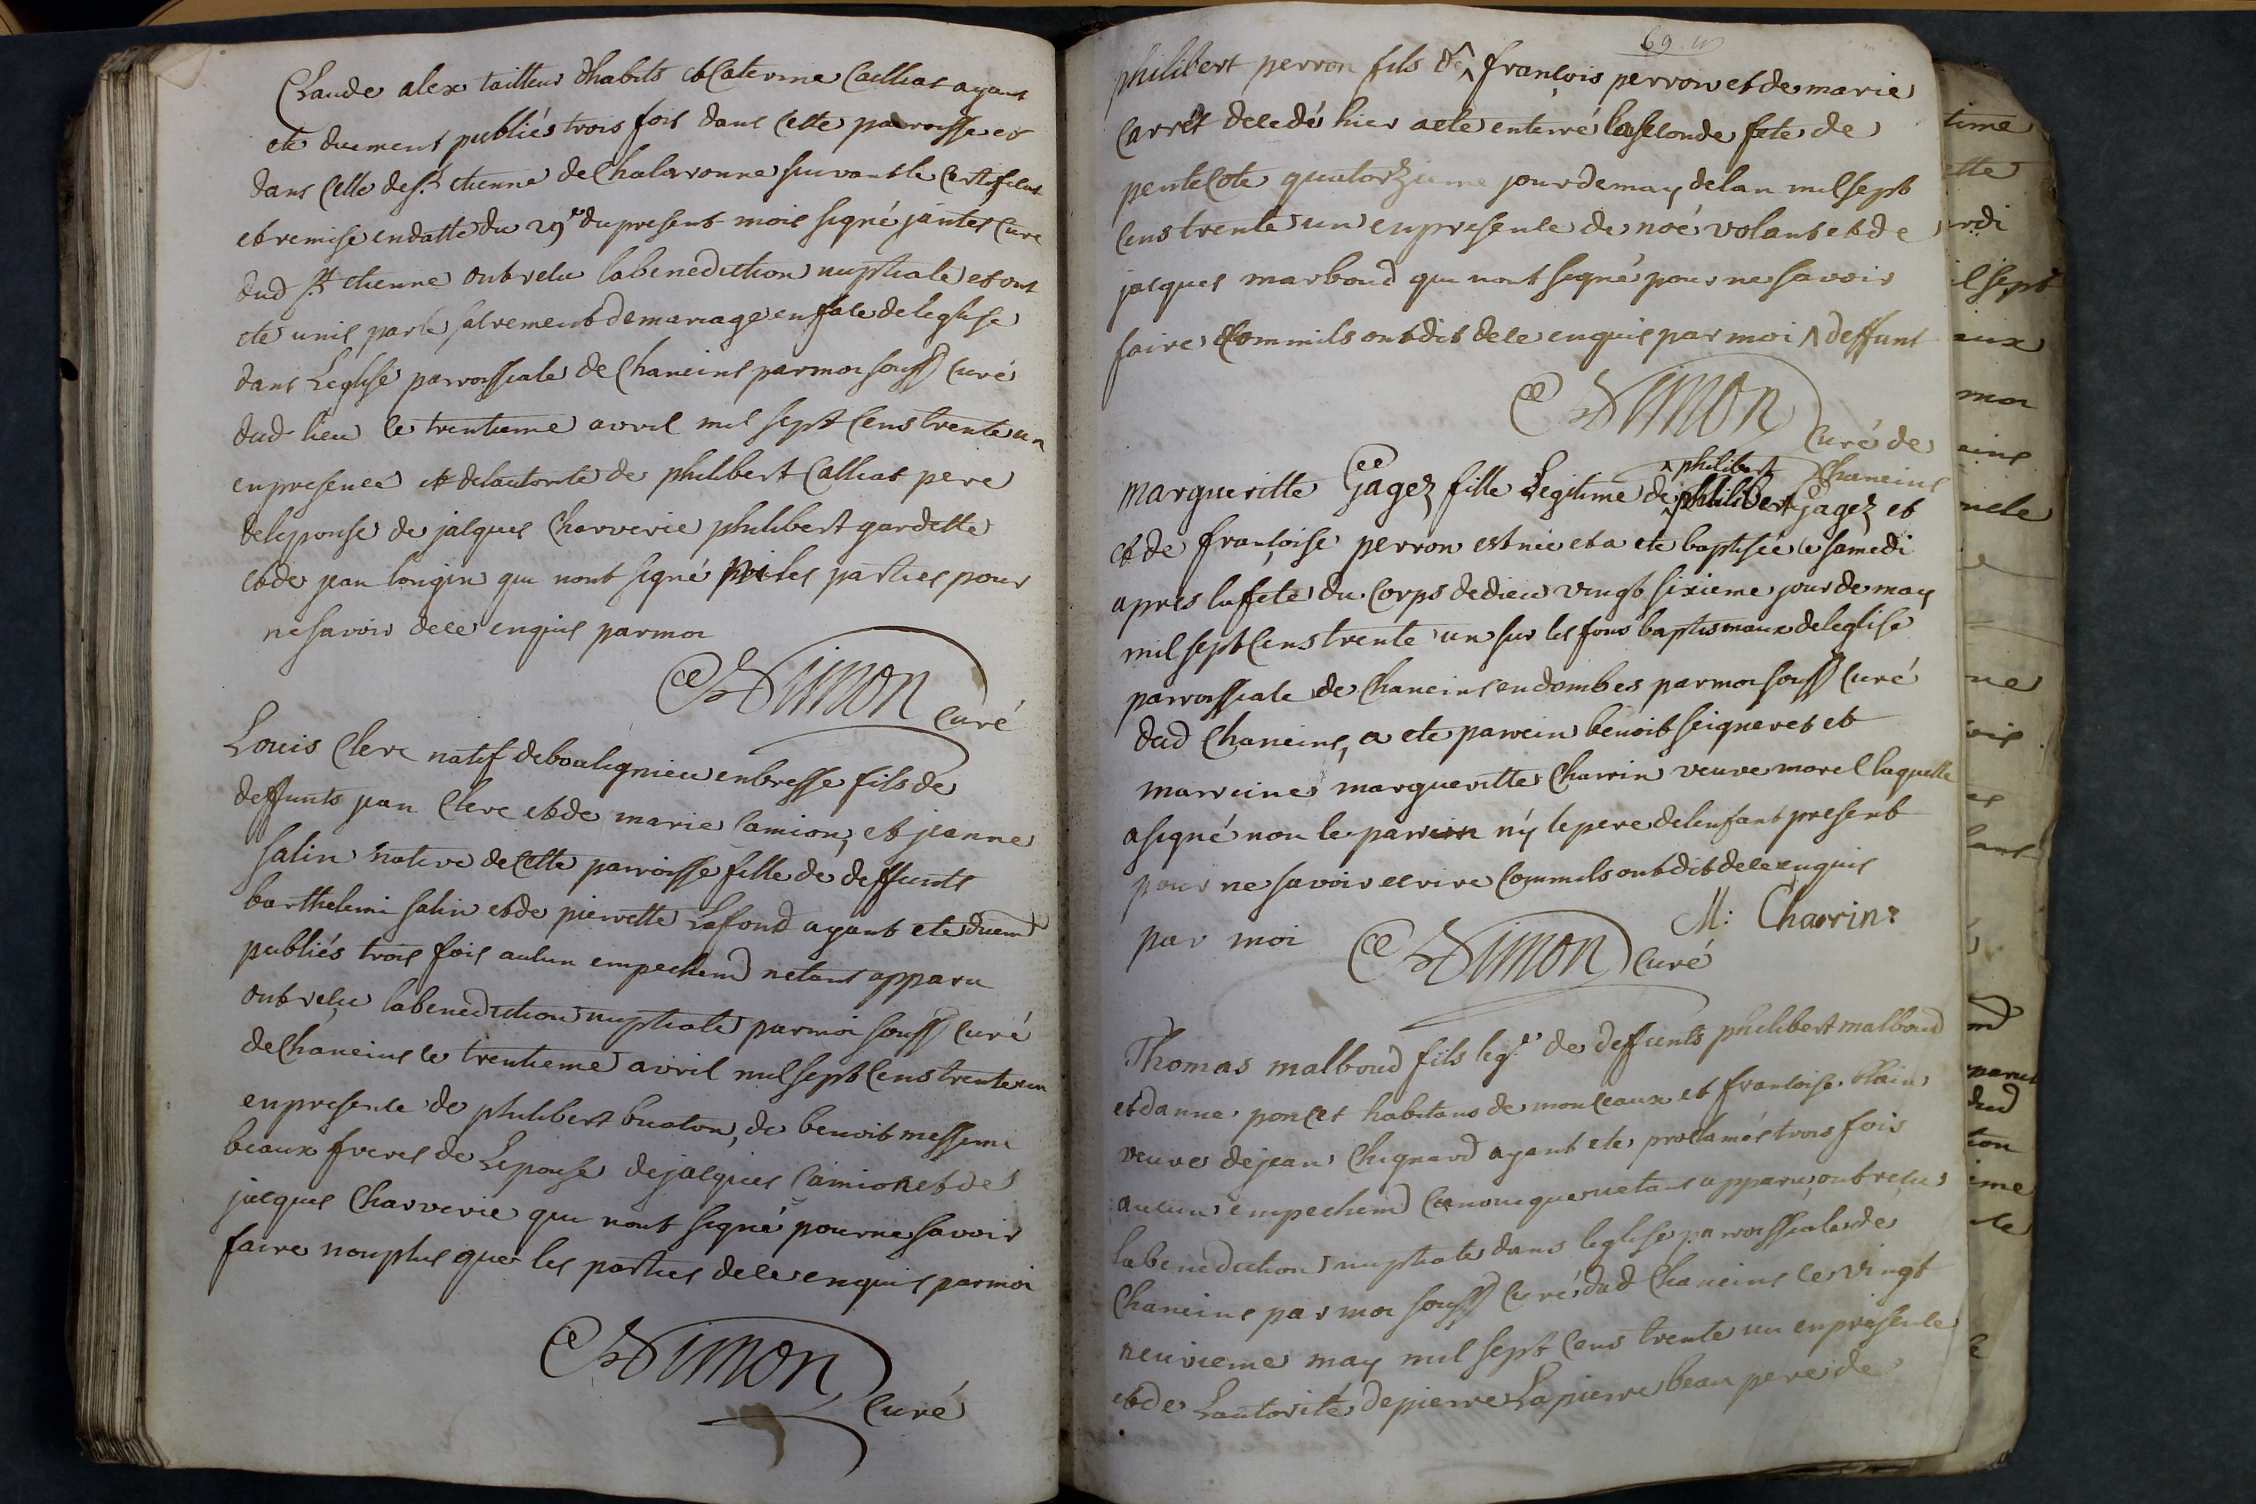 Claude alex tailleur dhabits et Caterine Calliat ayant
ete duement publiés trois fois dans cette parroisse et
dans celle de st etienne de Chalaronne suivant le certificat
et remise en datte du 29e du present mois signé jantet curé
dud st etienne ont recu la benediction nuptiale et ont
ete unis par le sacrement de mariage en face de leglise
dans Leglise parroissiale de Chaneins par moi souss curé
dud lieu le trentieme avril mil sept cens trente un
en presence et de lautorité de philibert Calliat pere
de lepouse de jacques Charverie philibert gardette
et de jean longin qui nont signé ni les parties pour
ne savoir de ce enquis par moi
Simon curé
Louis Clerc natif de boulignieu en bresse fils de
deffunts jean Clerc et de marie Camion, et jeanne
salin native de cette parroisse fille de deffunts
barthelemi salin et de pierrette Lafond ayant ete duemt
publiés trois fois aucun empechemt netant apparu
ont reçu la benediction nuptiale par moi souss curé
de Chaneins le trentieme avril mil sept cens trente un
en presence de philibert buaton, de benoit messimi
beaux freres de Lepouse de jacques Camion et de
jacques Charverie qui nont signé pour ne savoir
faire non plus que les parties de ce enquis par moi
Simon curé
69
philibert perron fils de ^ françois perron et de marie
Carrét decedé hier a ete enterré la seconde fete de
pentecote quatorzieme jour de may de lan mil sept
cens trente un en presence de noé volant et de
jacques marboud qui nont signé pour ne savoir
faire comm ils ont dit de ce enquis par moi ^ deffunt
Simon curé de
Chaneins
^ philibert
margueritte Gagez fille Legitime de ^ philibert Gagez et
et de françoise perron est née et a ete baptisée le samedi
apres la fete du Corps de dieu vingt sixieme jour de may
mil sept cens trente un sur les fons baptismaux de leglise
parroissiale de Chaneins en dombes par moi souss curé
dud Chaneins, a ete parrein benoit seigneret et
marreine margueritte Charrin veuve morel laquelle
a signé non le parrein ny le pere de lenfant present
pour ne savoir ecrire comm ils ont dit de ce enquis
par moi M: Charrin
Simon curé
Thomas malboud fils lege de deffunts philibert malboud
et danne poncet habitans de monceaux et francoise Blain
veuve de jean Chignard ayant ete proclamés trois fois
aucun empechemt canonique netant apparu, ont reçu
la benediction nuptiale dans leglise parroissiale de
Chaneins par moi souss curé dud Chaneins le vingt
neuvieme may mil sept cens trente un en presence
et de Lautorité de pierre Lapierre beau pere de